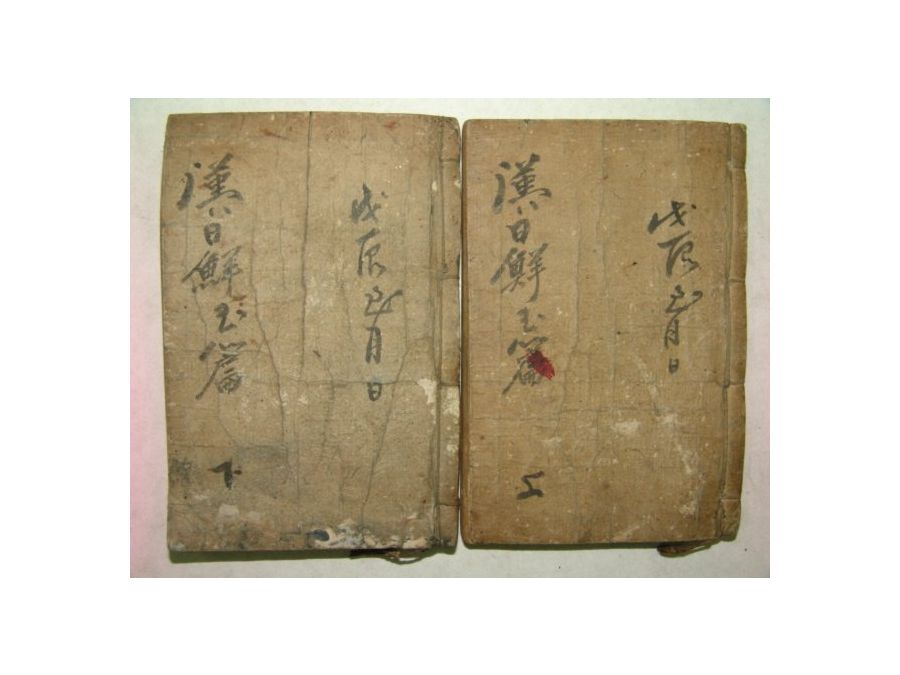 戊辰月日
漢日鮮玉篇
上
戊辰月日
漢日鮮玉篇
下